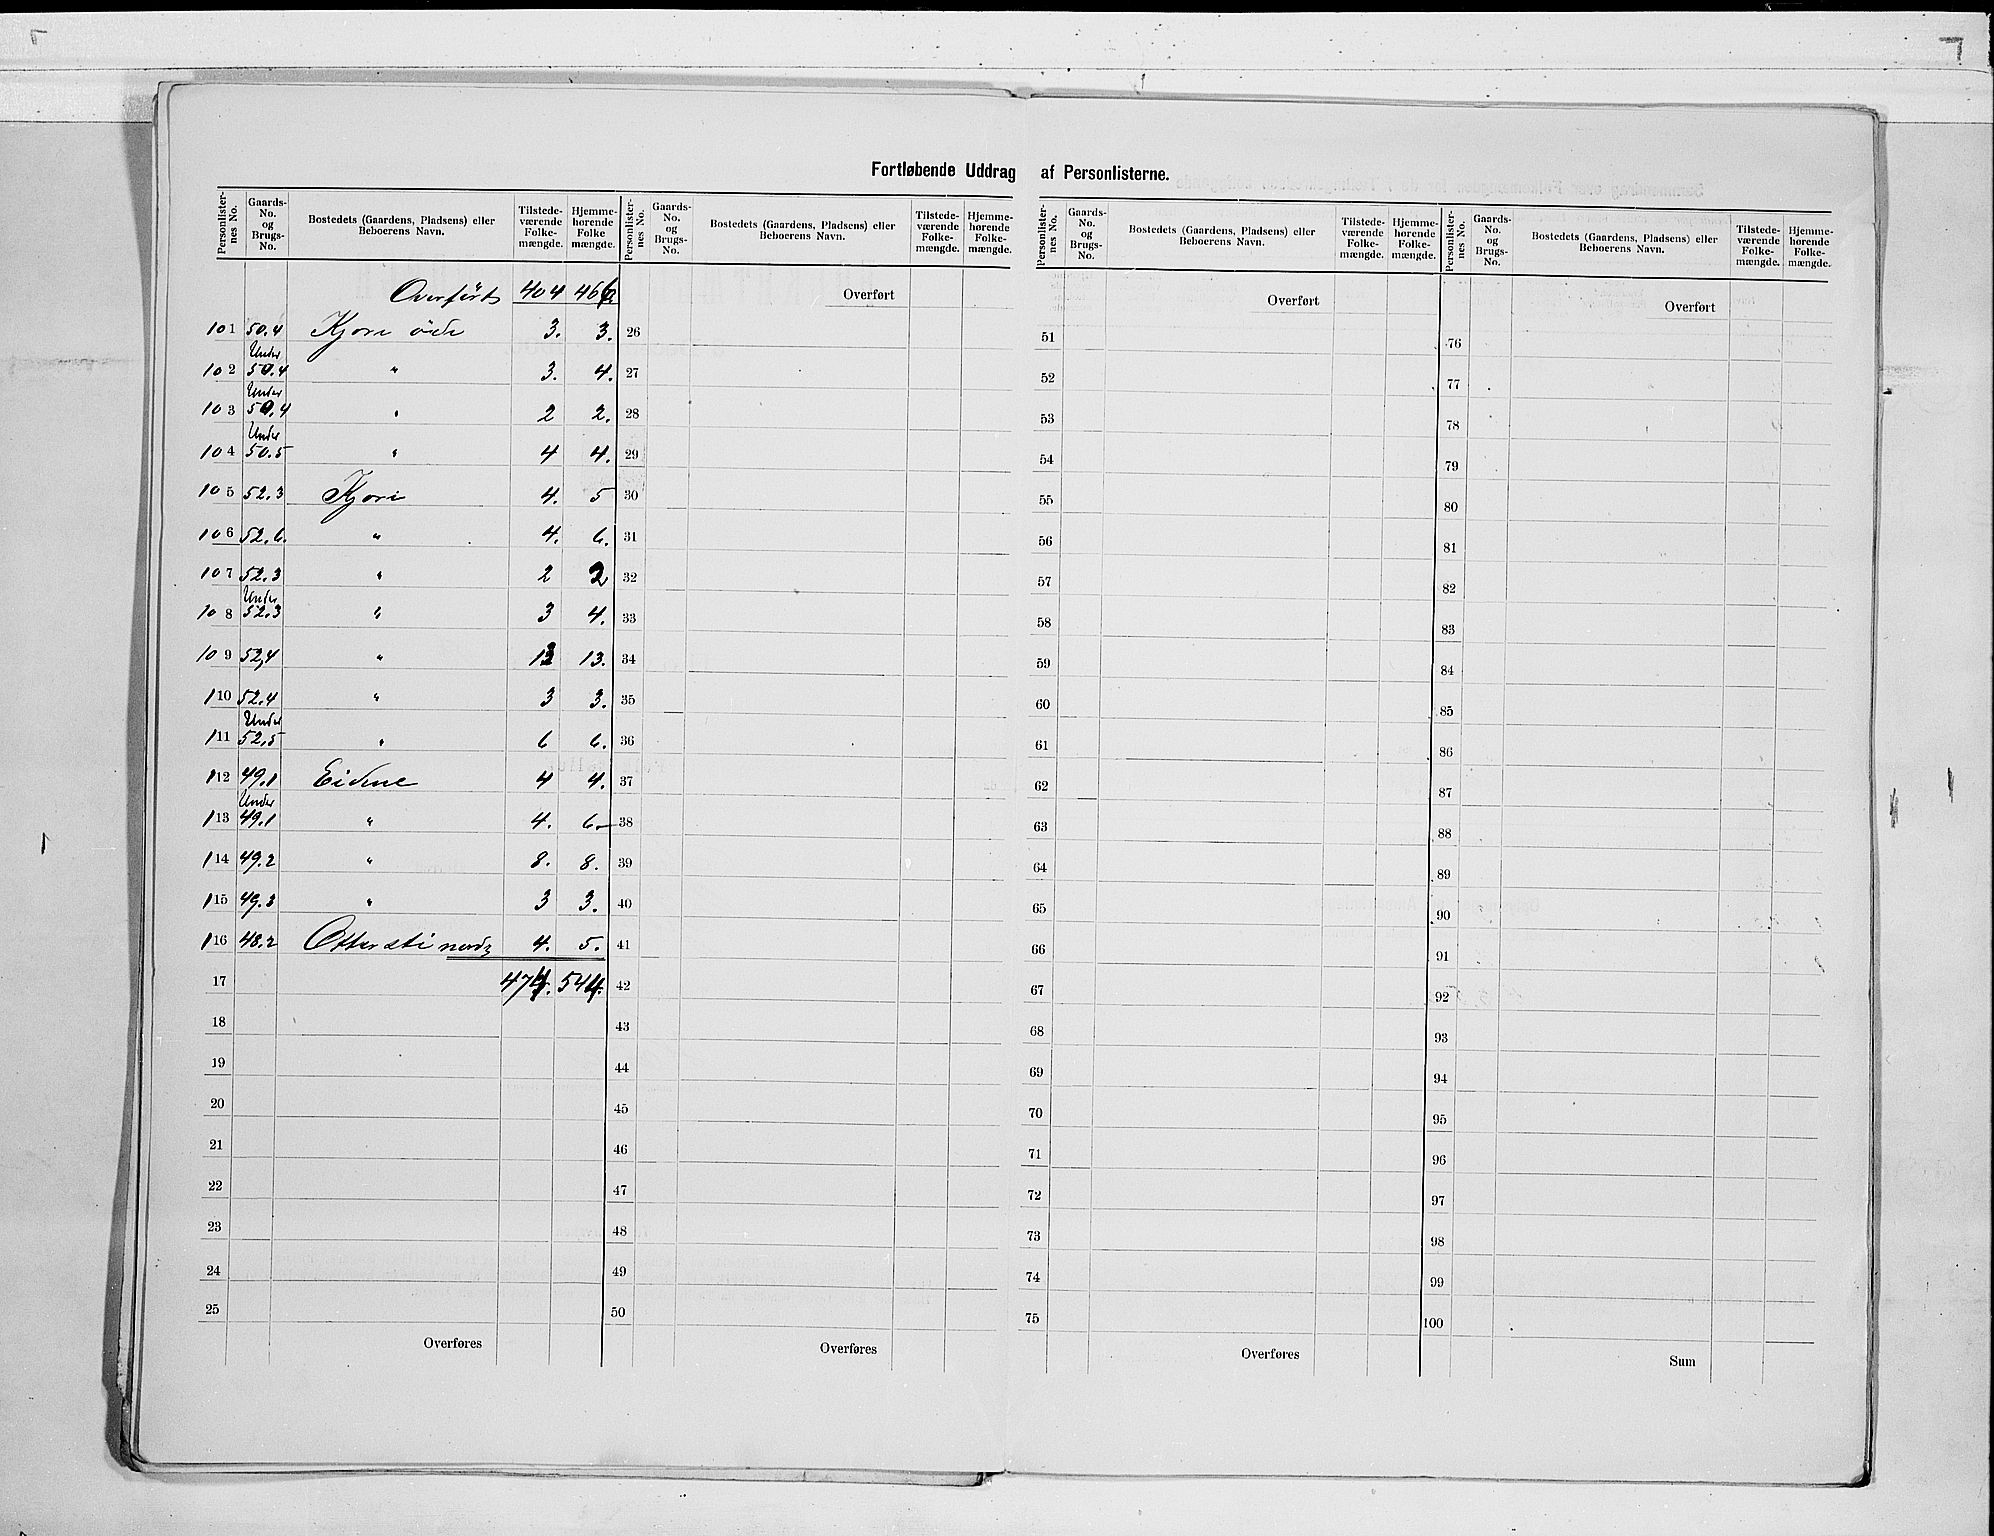 Fortløbende Uddrag af Personlisterne.
Personlister-nes No. | Gaards-No. og Brugs-No. | Bostedets (Gaardens, Pladsens) eller Beboerens Navn. | Tilstede-værende Folke-mængde. | Hjemme-hørende Folke mængde.
Overført 404 466
101 50.4 Kjøre öde 3. 3.
102 Under 50.4 " 3. 4.
103 Under 50.4 " 2 2.
104 Under 50.5 " 4 4.
105 52.3 Kjøre 4. 5
106 52.6. " 4. 6.
107 52.3 " 2 2
108 Under 52.3 " 3 4.
109 52,4 " 13 13.
110 52.4 " 3 3.
111 Under 52.5 " 6 6.
112 49.1 Eidene 4 4.
113 Under 49.1 " 4. 6
114 49.2 " 8. 8.
115 49.3 " 3 3.
116 48.2 Otterstinordr 4. 5.
17 474. 544.
18
19
20
21
22
23
24
25
Overføres
Personlister-nes No. | Gaards-No. og Brugs-No. | Bostedets (Gaardens, Pladsens) eller Beboerens Navn. | Tilstede-værende Folke-mængde. | Hjemme-hørende Folke-mængde.
Overført
26
27
28
29
30
31
32
33
34
35
36
37
38
39
40
41
42
43
44
45
46
47
48
49
50
Overføres
Personlister-nes No. | Gaards-No. og Brugs-No. | Bostedets (Gaardens, Pladsens) eller Beboerens Navn. | Tilstede-værende Folke-mængde. | Hjemme-hørende Folke-mængde.
Overført
51
52
53
54
55
56
57
58
59
60
61
62
63
64
65
66
67
68
69
70
71
72
73
74
75
Overføres
Personlister-nes No. | Gaards-No. og Brugs-No. | Bostedets (Gaardens, Pladsens) eller Beboerens Navn. | Tilstede-værende Folke-mængde. | Hjemme-hørende Folke-mængde.
Overført
76
77
78
79
80
81
82
83
84
85
86
87
88
89
90
91
92
93
94
95
96
97
98
99
100
Sum